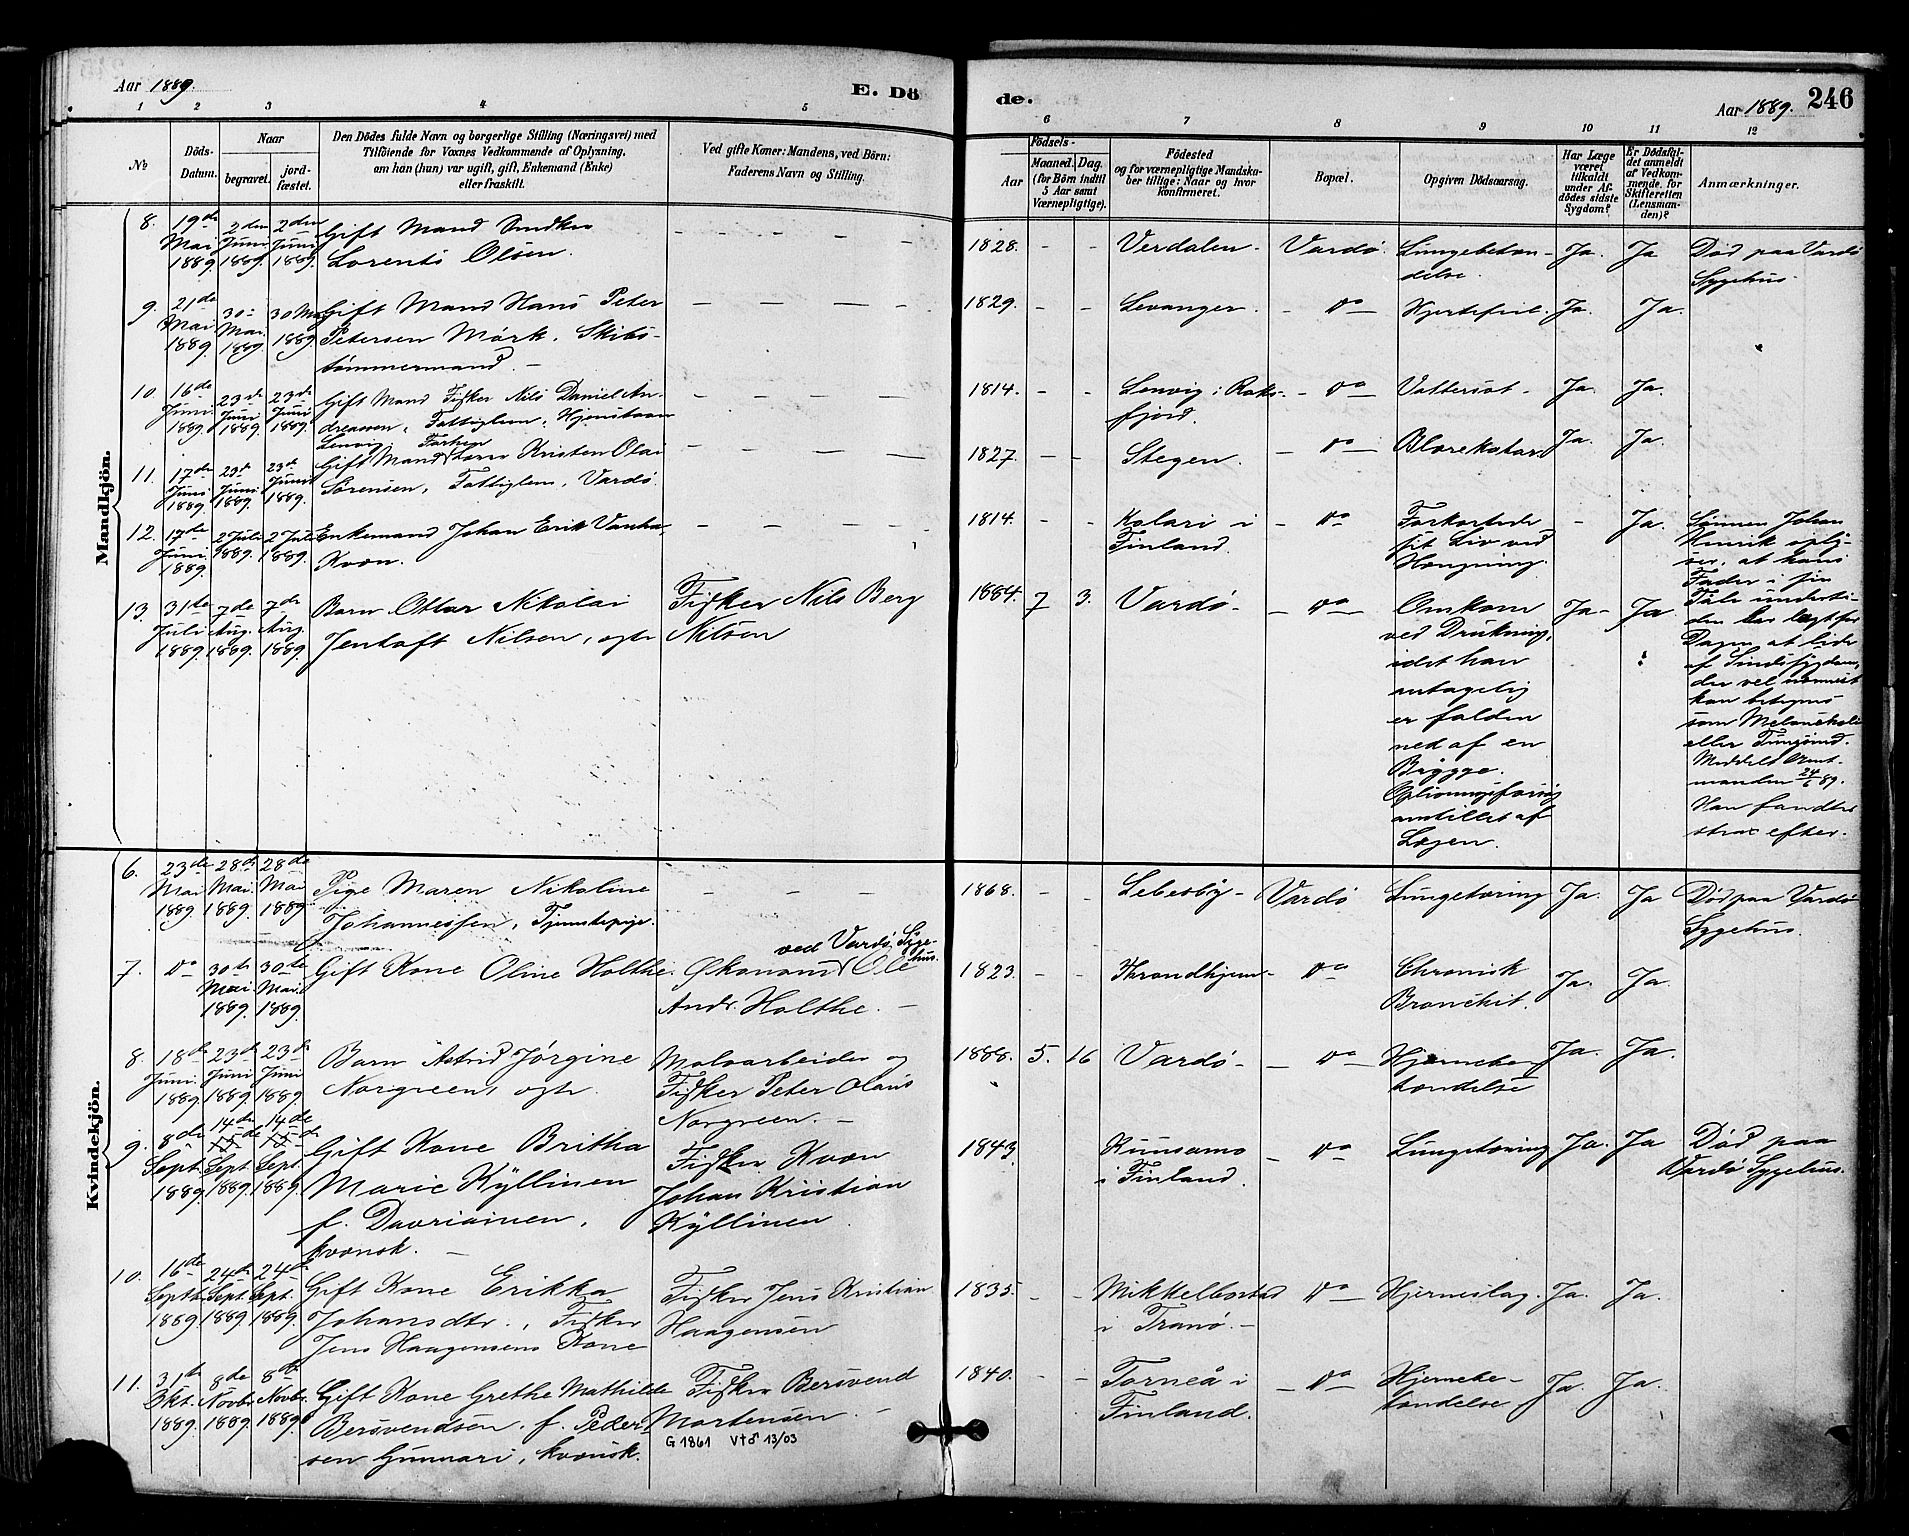 Aar 1889.
E. Dö
de.
Aar 1889.
246
1 2 3 4 5 6 7 8 9 10 11 12
No
Döds-Datum.
Naar
begravet.
jord-fæstet.
Den Dödes fulde Navn og borgerlige Stilling (Næringsvei) med
Tilföiende for Voxnes Vedkommende af Oplysning,
om han (hun) var ugift, gift, Enkemand (Enke)
eller fraskilt.
Ved gifte Koner: Mandens, ved Börn:
Faderens Navn og Stilling.
Födsels-
Aar
Maaned.
Dag.
(for Börn indtil
5 Aar samt
Værnepligtige).
Födested
og for værnepligtige Mandska-
ber tillige: Naar og hvor
konfirmeret.
Bopæl.
Opgiven Dödsaarsag.
Har Læge
været
tilkaldt
under Af-
dödes sidste
Sygdom?
Er Dödsfal-
det anmeldt
af Vedkom-
mende for
Skifteretten
(Lensman-
den)?
Anmærkninger.
Mandkjön.
8. 19de Mai 1889 2den Juni 1889. 2den Juni 1889.
Gift Mand Snedker
Lorents Olsen.
1828. - - Verdalen. Vardö. Lungebetæn-
delse. Ja. Ja
Död paa Vardö
Sygehus.
9. 21de Mai 1889 30 Mai 1889. 30 Mai 1889.
Gift Mand Hans Peter
Petersen Mörk. Skibs-
tömmermand. -
1829. - - Levanger. - Do - Hjertefeil. Ja. Ja.
10. 16de Juni 1889. 23de Juni 1889. 23de Juni 1889.
Gift Mand Fisker Nils Daniel An-
dreassen, Fattiglem, Hjemstavn
Lenvig.
1814. - - Lenvig i Raks-
fjord. - Do - Vattersot. Ja. Ja.
11. 17de Juni 1889. 23de Juni 1889. 23de Juni 1889.
Gift Mand Kristen Olai
Sörensen, Fattiglem, Vardö.
1827. - - Stegen. - Do - Blærekatar. Ja. Ja.
12. 17de Juni 1889. 2 Juli 1889. 2 Juli 1889.
Enkemand Johan Erik Vanha,
Kvæn.
1814. - - Kolari i
Finland. - Do - Forkortede
sit Liv ved
Hængning. - Ja.
Sönnen Johan
Henrik oply-
ser, at hans
Fader i sin
Tale underti-
den har lagt for
Dagen at lide
af Sindssygdom,
der vel nærmest
kan betegnes
som Melankoli
eller Tungsind.
Meddelt Amt-
manden 24/6 89.
Han fandtes
strax efter.
13. 31te Juli 1889. 7de Aug. 1889. 7de Aug. 1889.
Barn Ottar Nikolai
Jentoft Nilsen, ægte
Fisker Nils Berg
Nilsen
1884. 7 3. Vardö - Do -
Omkom
ved Drukning,
idet han
antagelig
er falden
ned af en
Brygge.
Oplivningsforsög
anstillet af
Lægen.
Ja - Ja.
Kvindekjön.
6. 23de Mai 1889. 28de Mai. 1889. 28de Mai 1889.
Pige Maren Nikoline
Johannessen, Tjenestepige.
1868. - - Lebesby - Vardö Lungetæring Ja. Ja
Död paa Vardö
Sygehus.
7. Do 30te Mai 1889. 30te Mai. 1889.
Gift Kone Oline Holthe.
Økonom ved Vardö Syge-
hus. Ole
Andr. Holthe. -
1823. - - Throndhjem - Do - Chronisk
Bronchit. Ja. Ja.
8. 18de Juni. 1889. 23de Juni 1889. 23de Juni 1889.
Barn Astrid Jörgine
Norgreen, ægte.
Moloarbeider og
Fisker Peter Olaus
Norgreen. -
1888. 5. 16 Vardö - Do - Hjernebe-
tændelse Ja. Ja.
9. 8de Sept. 1889. 14de Sept 1889. 14de Sept. 1889.
Gift Kone Britha
Marie Kyllinen
f. Davriainen,
kvænsk. -
Fisker Kvæn
Johan Kristian
Kyllinen
1843. Kuusamo
i Finland. - Do - Lungetæring Ja. Ja
Död paa
Vardö Sygehus.
10. 16de Septb. 1889. 24de Sept. 1889. 24de Sept. 1889.
Gift Kone Erikka
Johansdtr., Fisker
Jens Haagensens Kone
Fisker Jens Kristian
Haagensen
1835. - - Mikkelbostad
i Tranö. - Do - Hjerneslag. Ja. Ja.
11. 31te Okt. 1889. 8de Novb. 1889. 8de Novb. 1889.
Gift Kone Grethe Mathilde
Bersvendsen. f. Peder-
sen Gunnari, kvænsk.
Fisker Bersvend
Mortensen. -
G 1861 V+♂ 13/03
1840. - - Torneå i
Finland. - Do - Hjernebe-
tændelse Ja. Ja.